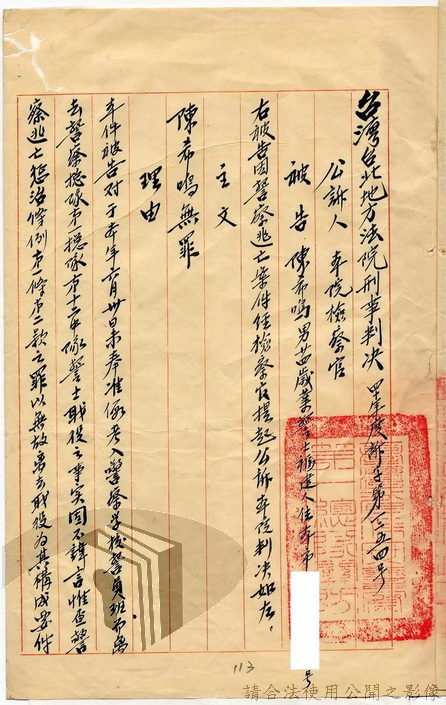 台灣台北地方法院刑事判決 四十年度訴字第一三五四號
公訴人 本院檢察官
被告 陳希鳴 男 廿四歲 業警士 福建人 住本市 號
右被告因警察逃亡案件經檢察官提起公訴本院判決如左。
主文
陳希鳴無罪
理由
本件被告对于本年六月卅日未奉准假考入警察学校警員班而离
去警察總隊第一總隊第十二中隊警士職役之事实固不諱言惟查警
察逃亡懲治條例第一條第二款之罪以無故离去職役为其構成要件
113
請合法使用公開之影像